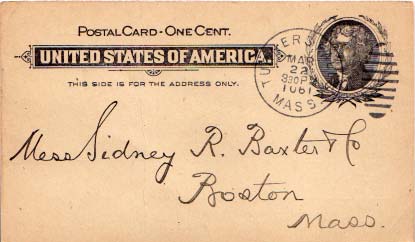 POSTAL CARD - ONE CENT.
UNITED STATES OF AMERICA.
THIS SIDE IS FOR THE ADDRESS ONLY.
MAR
22
330P
MASS
Mess Sidney R. Baxter & Co
Boston
Mass.